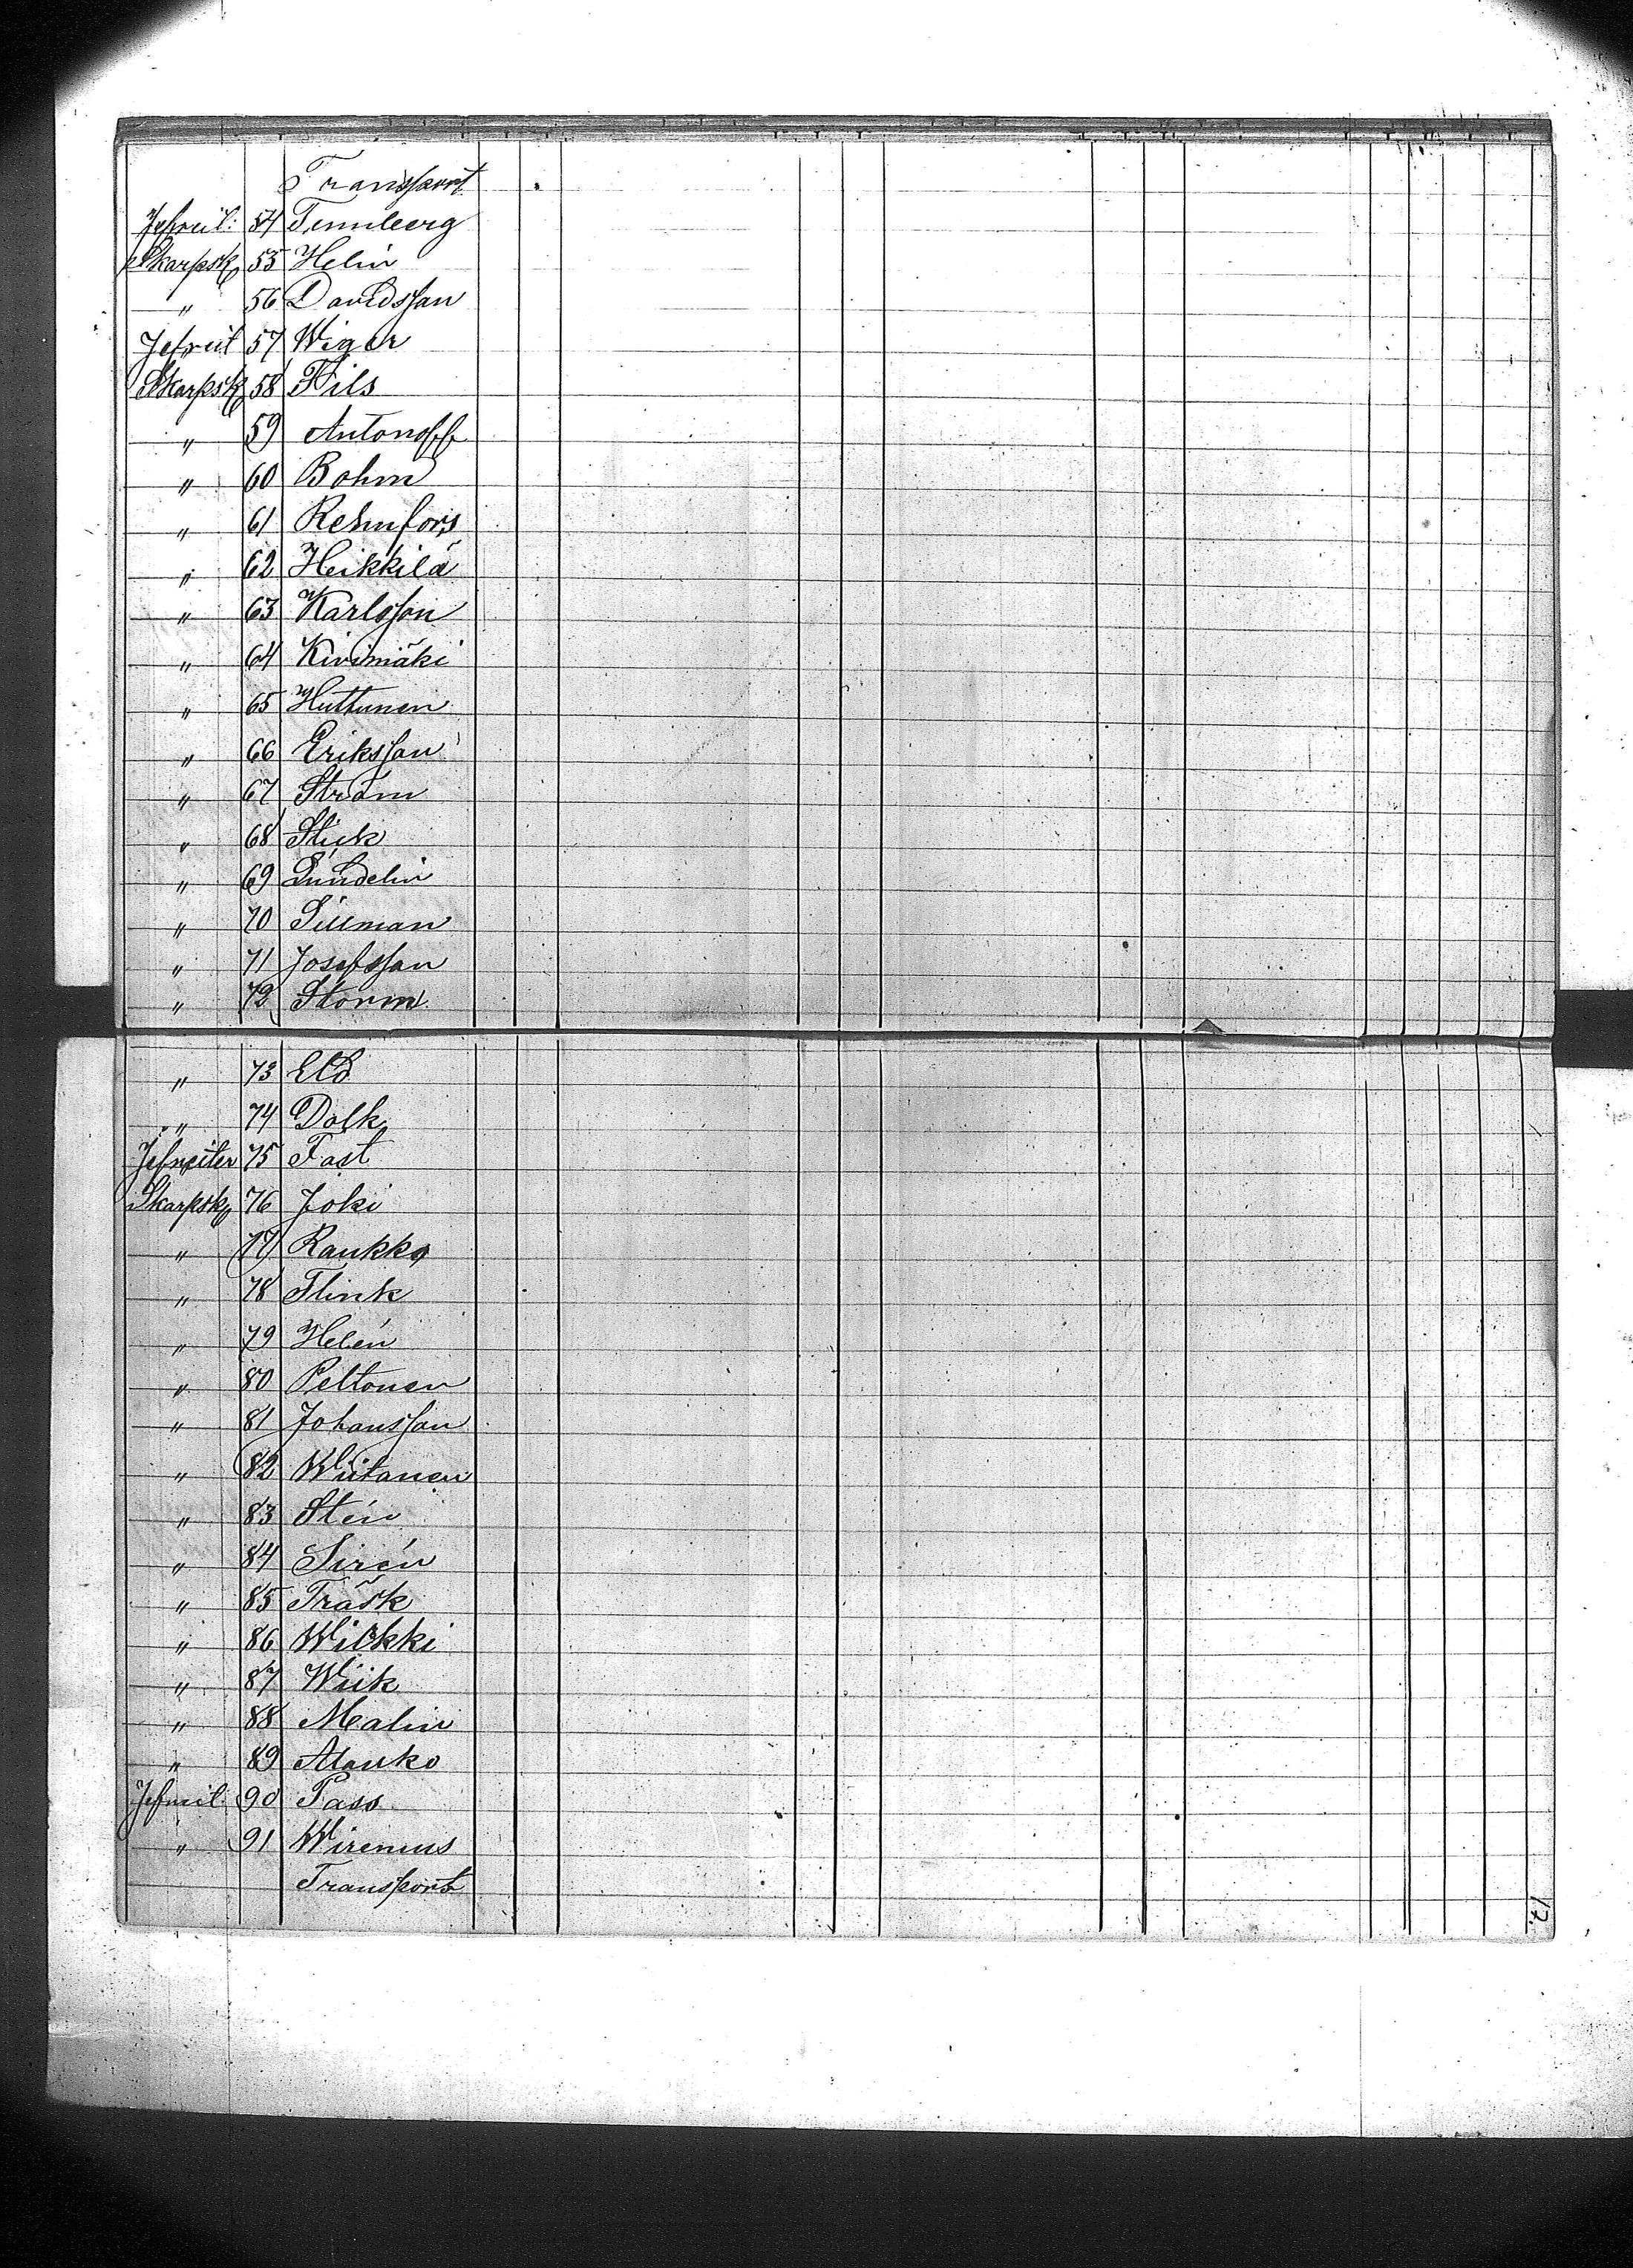 Transport
Jefreit: 54 Tennberg
Skarpsk 55 Helin
" 56 Davidsson
Jefreit 57 Wiger
Skarpsk 58 Fils
" 59 Antonoff
" 60 Bohm
" 61 Rehnfors
" 62 Heikkilä
" 63 Karlsson
" 64 Kivimäki
" 65 Huttunen
" 66 Eriksson
" 67 Ström
" 68 Stick
" 69 Lundelin
" 70 Silman
" 71 Josefsson
" 72 Storm
" 73 Eld
" 74 Dolk
Jefreiter 75 Fast
Skarpsk 76 Joki
" 77 Raukko
" 78 Flink
" 79 Helén
" 80 Peltonen
" 81 Johansson
" 82 Wiitanen
" 83 Stén
" 84 Sirén
" 85 Träsk
" 86 Wirkki
" 87 Wiik
" 88 Malin
" 89 Alanko
Jefreit. 90 Pass
" 91 Wirenius
Transport
17.